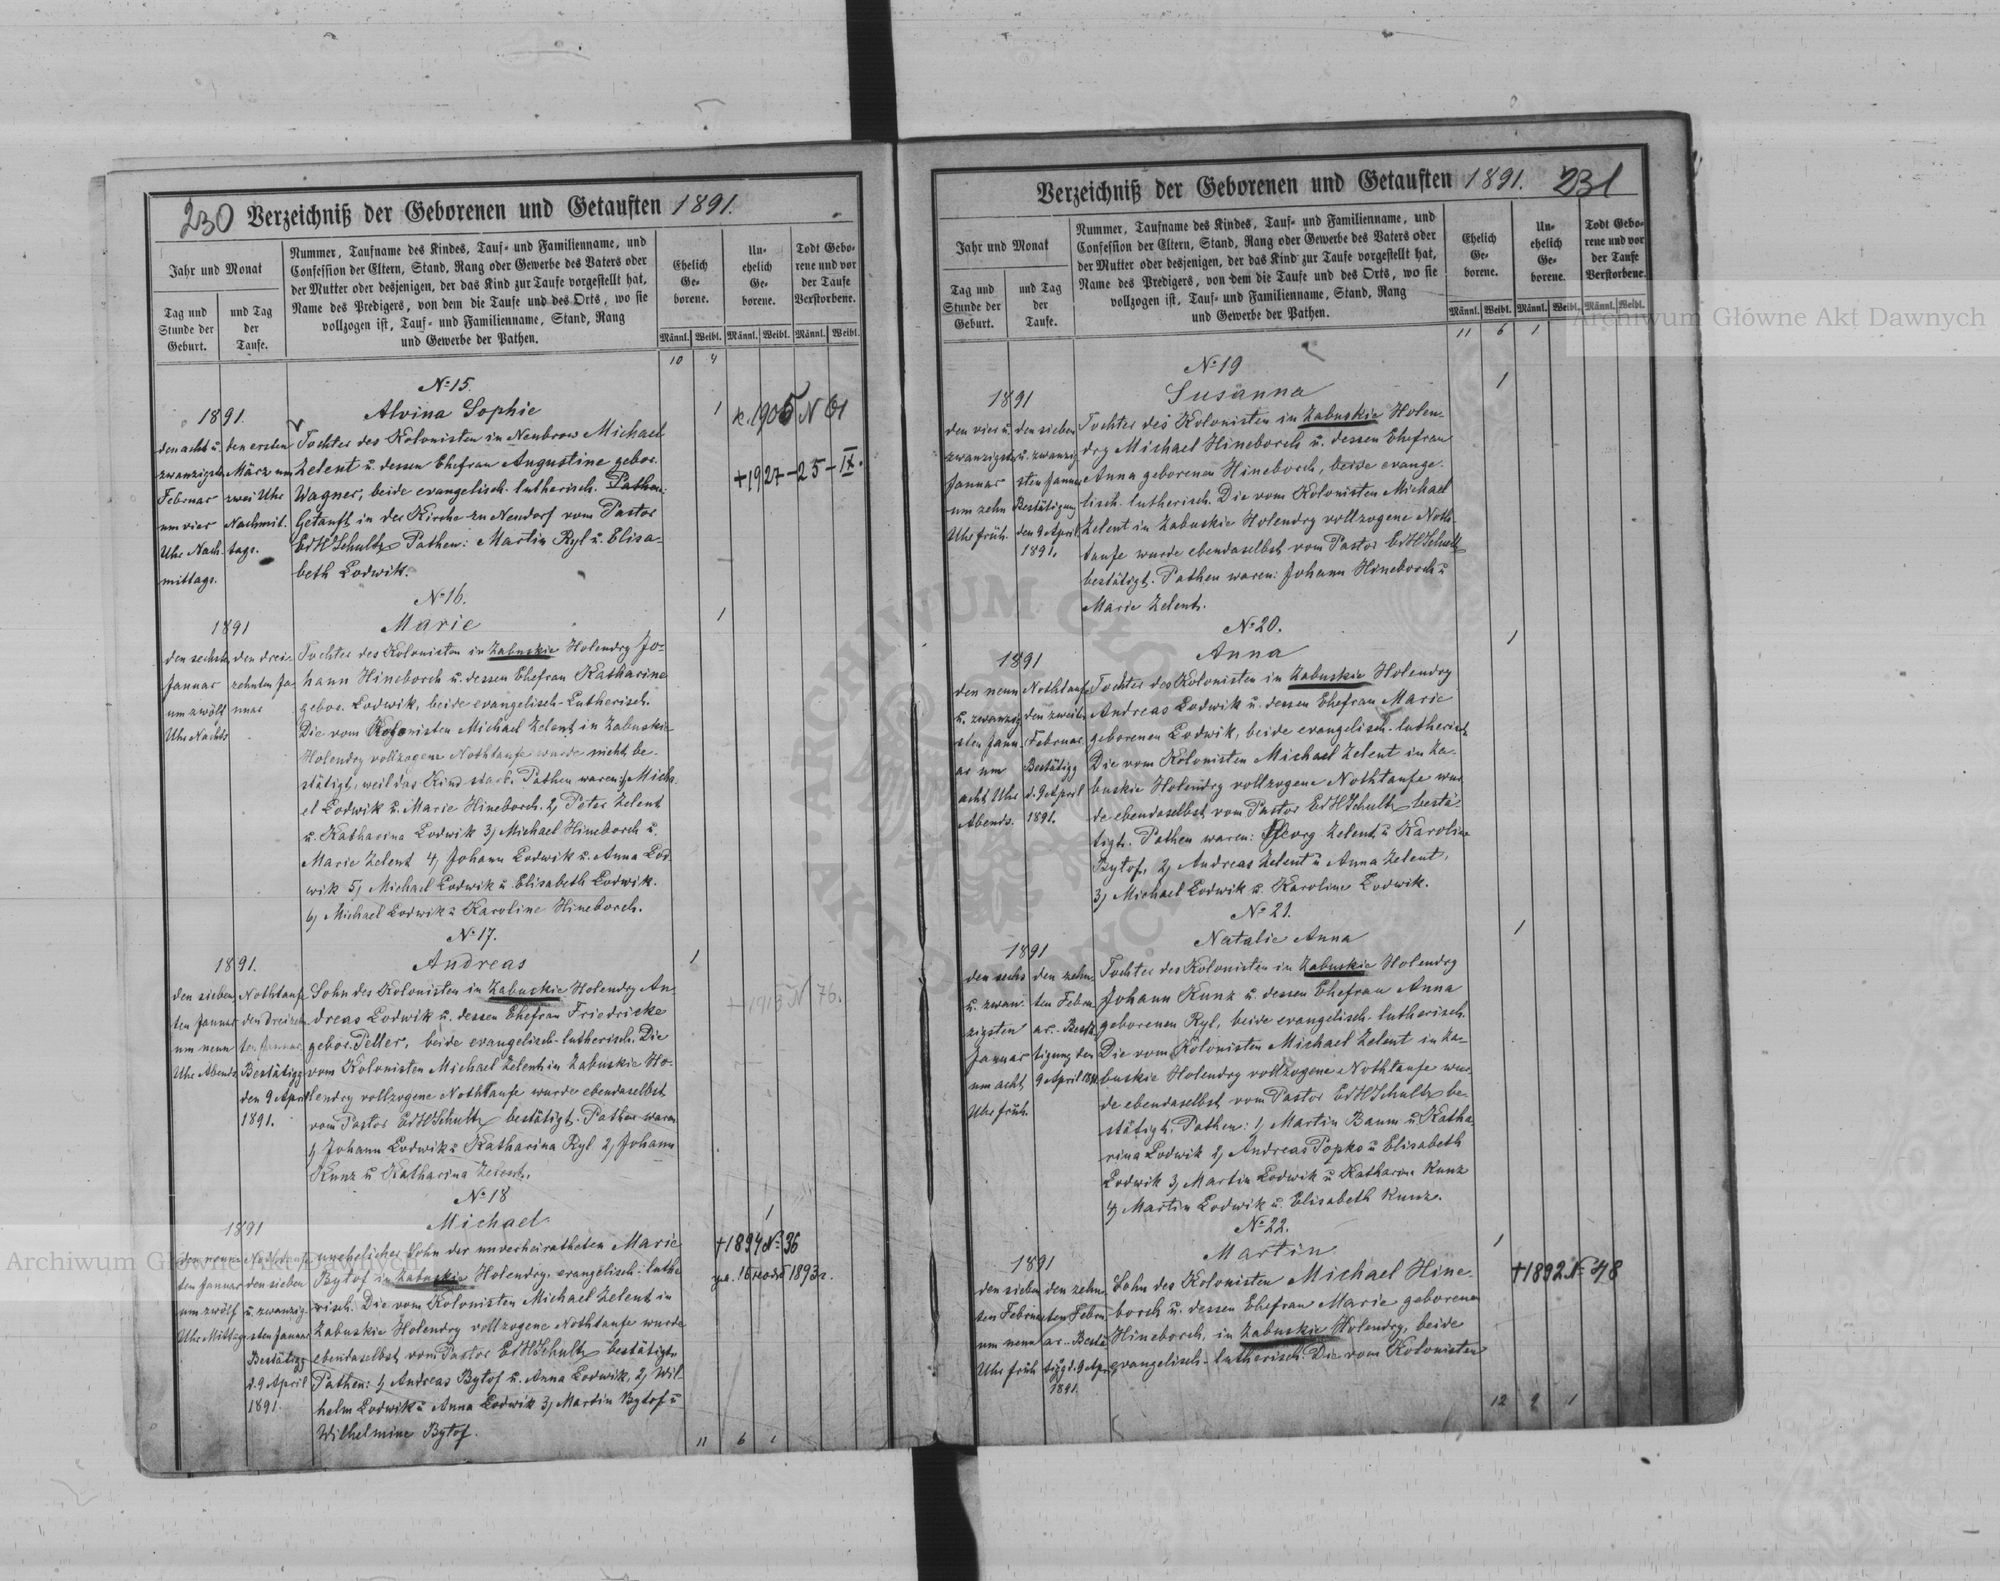 230 Verzeichniß der Geborenen und Getauften 1891.
Jahr und Monat
Tag und
Stunde der
Geburt.
und Tag
der
Taufe.
Nummer, Taufname des Kindes, Tauf- und Familienname, und
Confession der Eltern, Stand, Rang oder Gewerbe des Vaters oder
der Mutter oder desjenigen, der das Kind zur Taufe vorgestellt hat,
Name des Predigers, von dem die Taufe und des Orts, wo sie
vollzogen ist, Tauf- und Familienname, Stand, Rang
und Gewerbe der Pathen.
Ehelich
Ge-
borene.
Un-
ehelich
Ge-
borene.
Todt Gebo-
rene und vor
der Taufe
Verstorbene.
Männl. Weibl. Männl. Weibl. Männl. Weibl.
10 4
№ 15.
1891.
den acht u.
zwanzigsten
Februar
um vier
Uhr Nach
mittags.
den ersten
März um
zwei Uhr
Nachmit.
tags.
Alvina Sophie
Tochter des Kolonisten in Neubrow Michael
Zelent u. dessen Ehefrau Augustine gebor.
Wagner, beide evangelisch-lutherisch. Pathen:
Getauft in der Kirche zu Neudorf vom Pastor
EdHSchultz Pathen: Martin Ryl u. Elisa-
beth Lodwik.
1
+1927-25-IX.
№ 16.
1891
den sechsten
Januar
um zwölf
Uhr Nachts
den drei-
zehnten Ja
nuar
Marie
Tochter des Kolonisten in Zabuskie Holendry Jo-
hann Hineborch u. dessen Ehefrau Katharine
gebor. Lodwik, beide evangelisch-Lutherisch.
Die vom Kolonisten Michael Zelent in Zabuskie
Holendry vollzogene Nothtaufe wurde nicht be-
stätigt, weil das Kind starb. Pathen waren: 1, Micha
el Lodwik u. Marie Hineborch. 2, Peter Zelent
u. Katharina Lodwik 3, Michael Hineborch u.
Marie Zelent 4, Johann Lodwik u. Anna Lod
wik 5, Michael Lodwik u. Elisabeth Lodwik.
6, Michael Lodwik u Karoline Hineborch.
1
№ 17.
1891.
den sieben
ten Januar
um neun
Uhr Abends
Nothtaufe
den dreizehn
ten Januar
Bestätigg
den 9 April
1891.
Andreas
Sohn des Kolonisten in Zabuskie Holendry An
dreas Lodwik u. dessen Ehefrau Friedricke
gebor. Peller, beide evangelisch-lutherisch. Die
vom Kolonisten Michael Zelent in Zabuskie Ho-
lendry vollzogene Nothtaufe wurde ebendaselbst
vom Pastor EdHSchultz bestätigt. Pathen waren
1, Johann Lodwik u Katharina Ryl 2, Johann
Kunz u Katharina Zelent.
1
+1913 N 76.
№ 18
1891
den neun
ten Januar
um zwölf
Uhr Mittag
Nothtaufe
den sieben
u. zwanzig
sten Januar
Bestätigg
d. 9 April
1891.
Michael
unehelicher Sohn der unverheiratheten Marie
Bytof in Zabuskie Holendry, evangelisch-luthe
risch. Die vom Kolonisten Michael Zelent in
Zabuskie Holendry vollzogene Nothtaufe wurde
ebendaselbst vom Pastor EdHSchultz bestätigt.
Pathen: 1, Andreas Bytof u. Anna Lodwik. 2, Wil
helm Lodwik u Anna Lodwik 3, Martin Bytof u
Wilhelmine Bytof.
1
+1894 № 36
11 6 1
Verzeichniß der Geborenen und Getauften 1891. 231
Jahr und Monat
Tag und
Stunde der
Geburt.
und Tag
der
Taufe.
Nummer, Taufname des Kindes, Tauf- und Familienname, und
Confession der Eltern, Stand, Rang oder Gewerbe des Vaters oder
der Mutter oder desjenigen, der das Kind zur Taufe vorgestellt hat,
Name des Predigers, von dem die Taufe und des Orts, wo sie
vollzogen ist, Tauf- und Familienname, Stand, Rang
und Gewerbe der Pathen.
Ehelich
Ge-
borene.
Un-
ehelich
Ge-
borene.
Todt Gebo-
rene und vor
der Taufe
Verstorbene.
Männl. Weibl. Männl. Weibl. Männl. Weibl.
11 6 1
№ 19
1891
den vier u.
zwanzigsten
Januar
um zehn
Uhr früh.
den sieben
u. zwanzig
sten Januar
Bestätigung
den 9 April
1891.
Susanna
Tochter des Kolonisten in Zabuskie Holen-
dry Michael Hineborch u. dessen Ehefrau
Anna geborenen Hineborch, beide evange-
lisch-lutherisch. Die vom Kolonisten Michael
Zelent in Zabuskie Holendry vollzogene Noth-
taufe wurde ebendaselbst vom Pastor EdHSchultz
bestätigt. Pathen waren: Johann Hineborch u
Marie Zelent.
1
№ 20.
1891
den neun
u. zwanzig
sten Janu
ar um
acht Uhr
Abends.
Nothtaufe
den zweiten
Februar
Bestätigg
d. 9 April
1891.
Anna
Tochter des Kolonisten in Zabuskie Holendry
Andreas Lodwik u. dessen Ehefrau Marie
geborenen Lodwik, beide evangelisch-lutherisch
Die vom Kolonisten Michael Zelent in Za-
buskie Holendry vollzogene Nothtaufe wur
de ebendaselbst vom Pastor EdHSchultz bestä-
tigt. Pathen waren: Georg Zelent u Karoline
Bytof, 2, Andreas Zelent u Anna Zelent,
3, Michael Lodwik u. Karoline Lodwik.
1
№ 21.
1891
den sechs
u. zwan-
zigsten
Januar
um acht
Uhr früh.
den zehn
ten Febru
ar.- Bestä
tigung den
9 April 1891.
Natalie Anna
Tochter des Kolonisten in Zabuskie Holendry
Johann Kunz u. dessen Ehefrau Anna
geborenen Ryl, beide evangelisch-lutherisch.
Die vom Kolonisten Michael Zelent in Za-
buskie Holendry vollzogene Nothtaufe wur
de ebendaselbst vom Pastor EdHSchultz be-
stätigt. Pathen: 1, Martin Baum u. Katha
rina Lodwik 2, Andreas Popko u Elisabeth
Lodwik 3, Martin Lodwik u Katharina Kunz
4, Martin Lodwik u. Elisabeth Kunz.
1
№ 22.
1891
den sieben
ten Februar
um neun
Uhr früh
den zehn
ten Febru
ar.- Bestä
tigg d. 9 Apr.
1891.
Martin
Sohn des Kolonisten Michael Hine-
borch u. dessen Ehefrau Marie geborenen
Hineborch, in Zabuskie Holendry, beide
evangelisch-lutherisch. Die vom Kolonisten
1
+1892 № 48
12 9 1
Archiwum Główne Akt Dawnych
Archiwum Główne Akt Dawnych